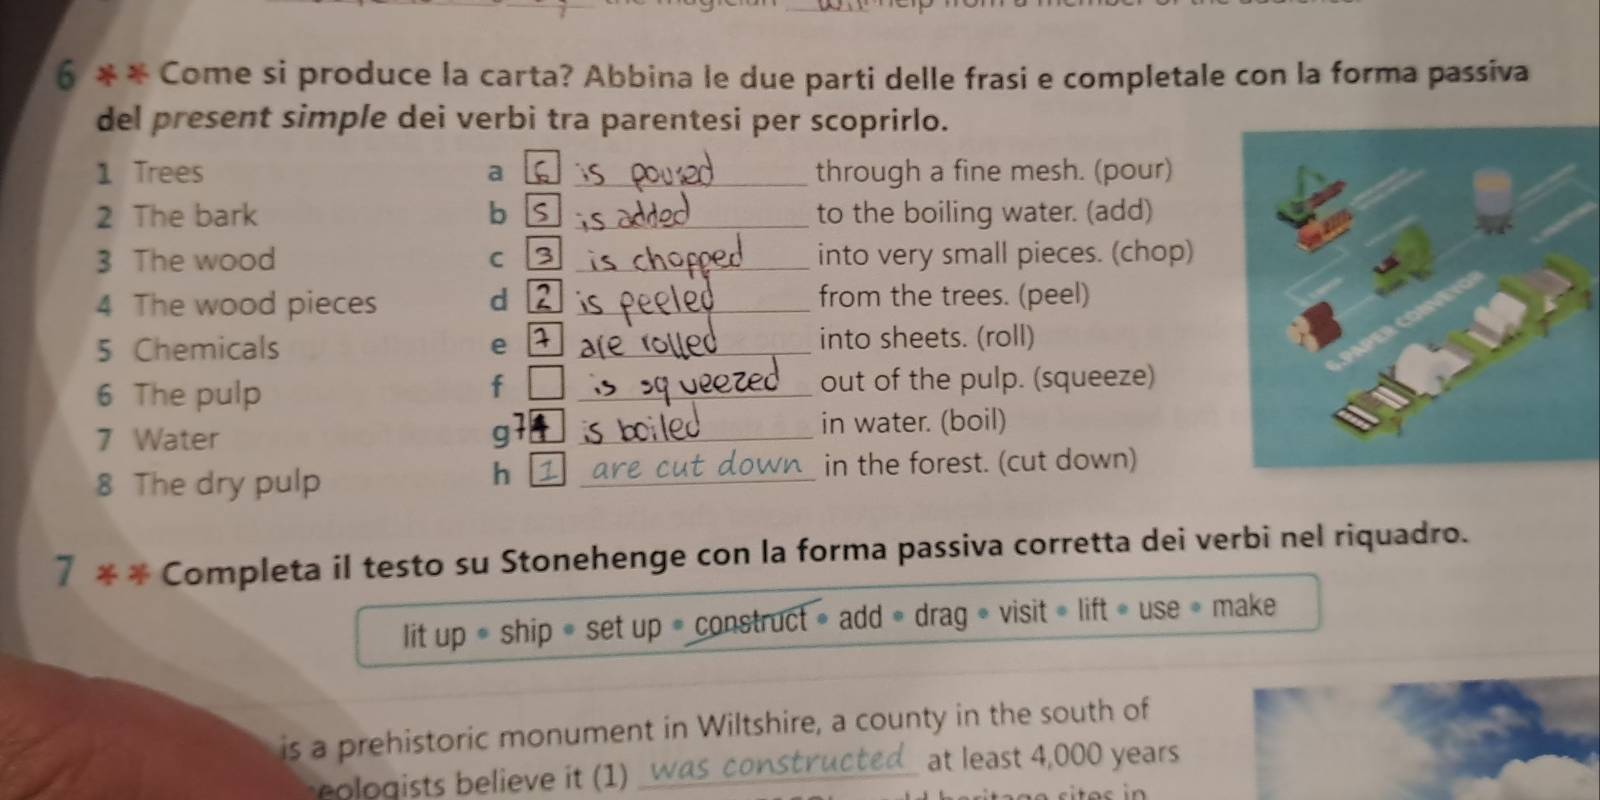 the magician will help from a member of the audience.
6 ** Come si produce la carta? Abbina le due parti delle frasi e completale con la forma passiva
del present simple dei verbi tra parentesi per scoprirlo.
1 Trees a 6 is poured through a fine mesh. (pour)
2 The bark b 5 is added to the boiling water. (add)
3 The wood c 3 is chopped into very small pieces. (chop)
4 The wood pieces d 2 is peeled from the trees. (peel)
5 Chemicals e 7 are rolled into sheets. (roll)
6 The pulp f is squeezed out of the pulp. (squeeze)
7 Water g 7 4 is boiled in water. (boil)
8 The dry pulp h 1 are cut down in the forest. (cut down)
6.PAPER CONVEYOR
7 ** Completa il testo su Stonehenge con la forma passiva corretta dei verbi nel riquadro.
lit up • ship • set up • construct • add • drag • visit • lift • use • make
is a prehistoric monument in Wiltshire, a county in the south of
eologists believe it (1) was constructed at least 4,000 years
heritage sites in